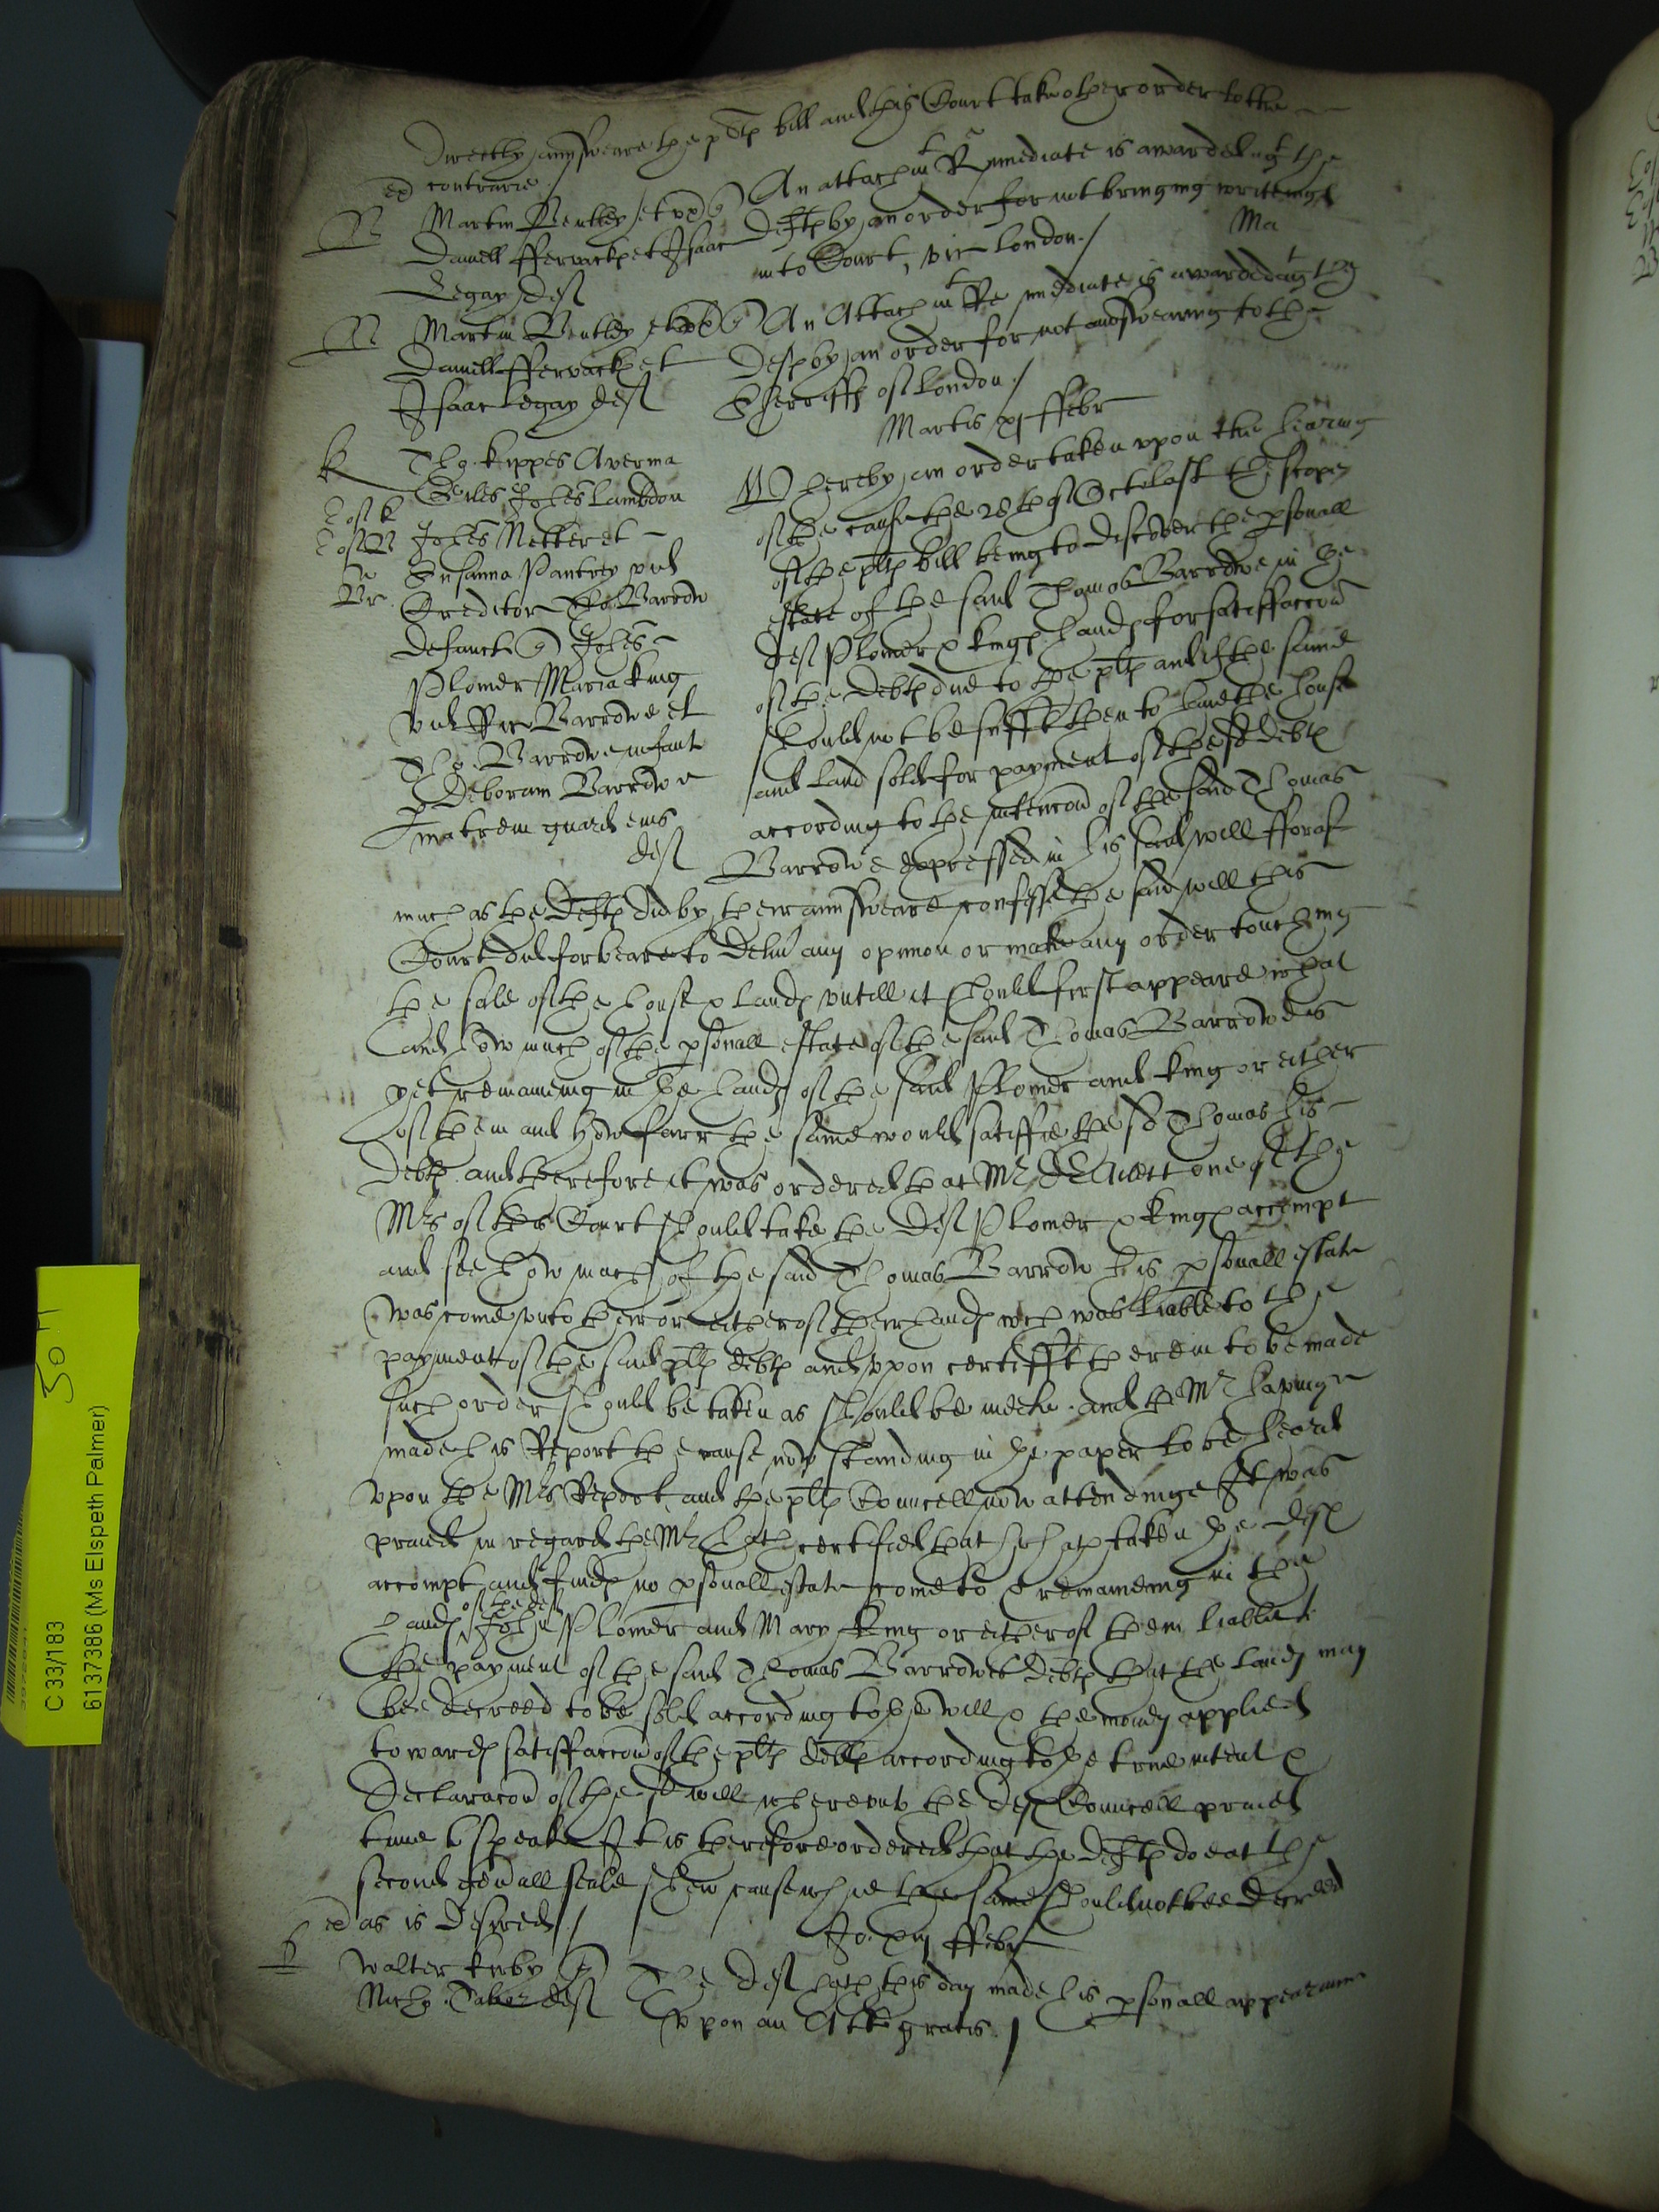 Directly answeare the pltes bill and this Court take other order to the
contrarie /
B Martin Bentley et ux q An attachmt Rx imediate is awarded agt the
Daniell Ffervackes et Isaac Deftes by an order for not bringing writeings
Legay Def into Court, vic London / Ma
B Martin Bentley et ux q An Attachmt Re imediate is awarded agt the
Daniell Ffervackes et Deftes by an order for not answearing to the
Isaac Legay Def Sheriffs of London /
Martis xj ffebr
K Tho. Kippes Averma
Giles Johes Lambdon
Johes Netter et
Susanna Pantry vid
Creditor Tho Barrow
Defunct q Johes
Plomer Maria King
vid ffr Barrowe et
Tho. Barrowe infant
p Deboram Barrowe
matrem guard eius
Def
Whereby an order taken upon the hearing
of the cause the 28th of Octr last the scope
of the pltes bill being to discover the psonall
estate of the said Thomas Barrowe in the
Def Plomer & Kings hands for satisfaccon
of the debtes due to the pltes and if the same
should not be suffit then to have the house
and land sold for payment of the sd debtes
according to the intencon of the said Thomas
Barrowe expressed in his said will fforas
much as the Deftes did by their answeare confesse the said will this
Court did forbeare to deliv any opinion or make any order touching
the sale of the house & lands untill it should first appeare what
and how much of the psonall estate of the said Thomas Barrowe is
yet remaineing in the hands of the said Plomer and King or either
of them and how farr the same would satisfie the sd Thomas his
debtes and therefore it was ordered that Mr one of the
Mrs of this Court should take the Def Plomer & Kings accompt
and see how much of the said Thomas Barrow his psonall estate
was come unto their or either of their hands wch was liable to the
payment of the said pltes debtes and upon certifft therein to be made
such order should be taken as should be meete. and the Mr having
made his Report the cause now standing in the paper to be heard
upon the Mrs Report and the pltes Councell now attendinge It was
praied in regard the Mr hath certified that he hath taken the Defs
accompt and finds no psonall estate come to & remaineing in the
hands of the def John Plomer and Mary King or either of them liable to
the payment of the said Thomas Barrowes debtes that the lands may
bee decreed to be sold according to the will & the money applied
towards satisfaccon of the pltes debtes according to the true intent &
Declaracon of the sd will whereunto the Defs Councell praied
time to speake It is therefore ordered that the Deftes doe at the
second genall seale shew cause why the same should not bee decreed
as is desired /
Jo. xiij ffebr
Walter Kirby q The Def hath this day made his psonall appearance
Nicho. Taber def upon an Att gratis /
C 33/183
6137386 (Ms Elspeth Palmer)